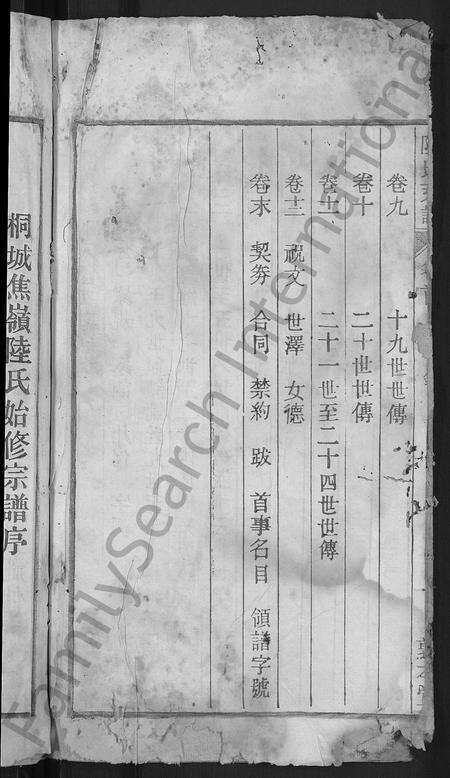 卷九 十九世世傳
卷十 二十世世傳
卷十一 二十一世至二十四世世傳
卷十二 祝文 世澤 女德
卷末 契券 合同 禁約 跋 首事名目 領譜字號
桐城焦嶺陸氏始修宗譜序
FamilySearch International